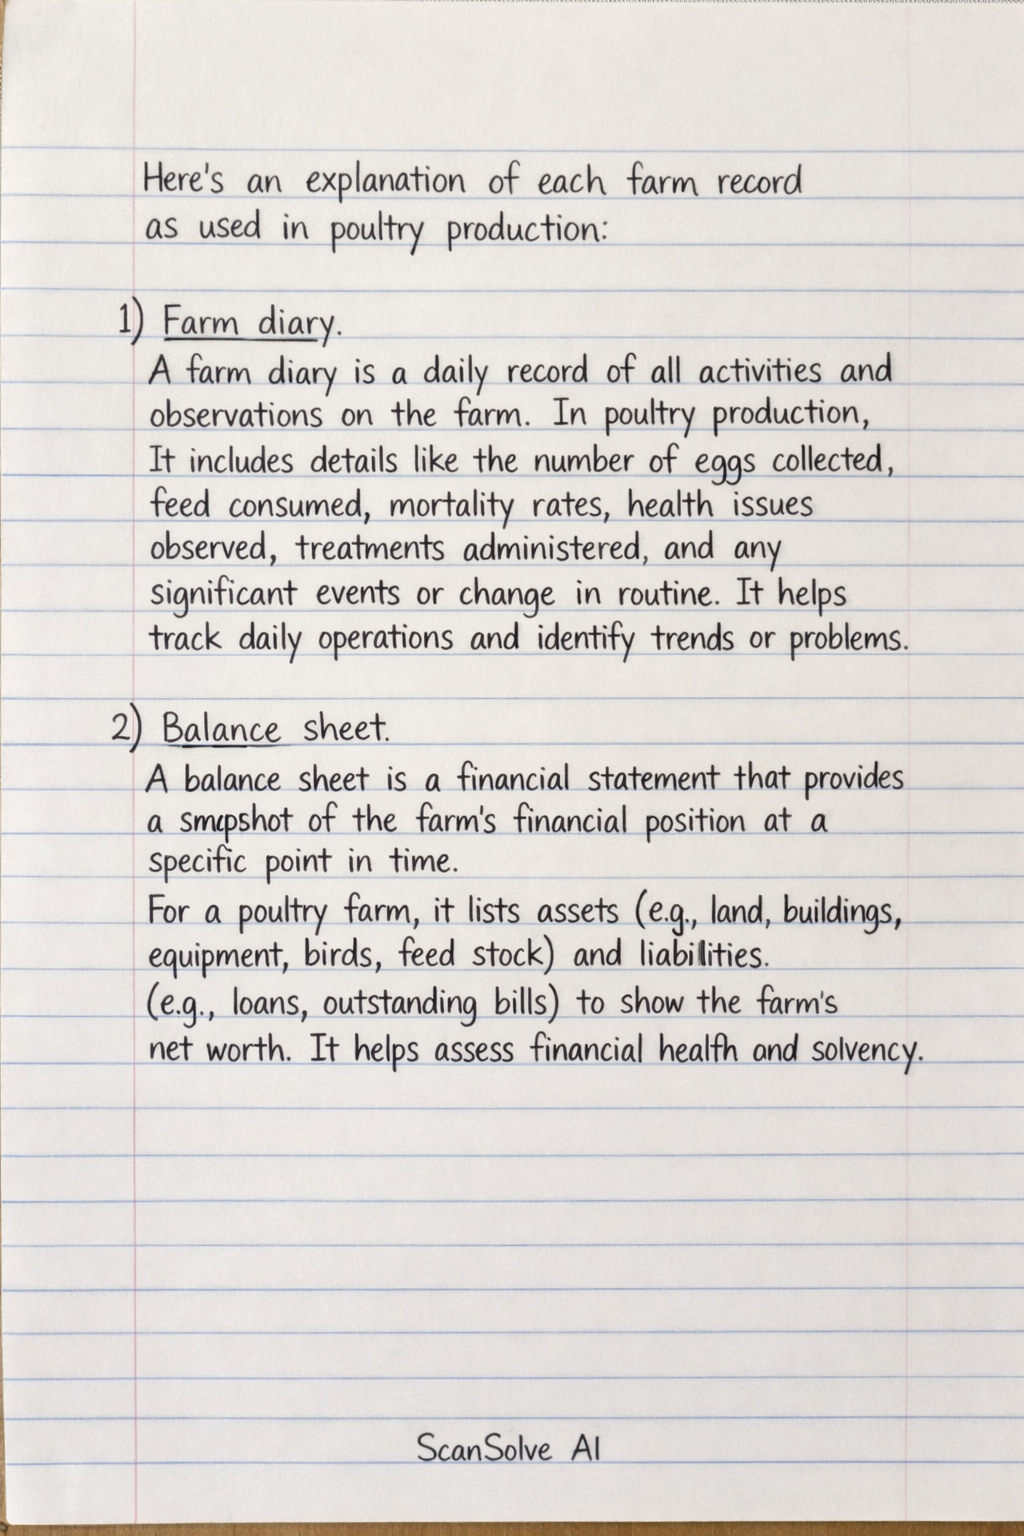 Here's an explanation of each farm record
as used in poultry production:
1) Farm diary.
A farm diary is a daily record of all activities and
observations on the farm. In poultry production,
It includes details like the number of eggs collected,
feed consumed, mortality rates, health issues
observed, treatments administered, and any
significant events or change in routine. It helps
track daily operations and identify trends or problems.
2) Balance sheet.
A balance sheet is a financial statement that provides
a of the farm's financial position at a
specific point in time.
For a poultry farm, it lists assets (e.g., land, buildings,
equipment, birds, feed stock) and liabilities.
(e.g., loans, outstanding bills) to show the farm's
net worth. It helps assess financial health and solvency.
ScanSolve AI